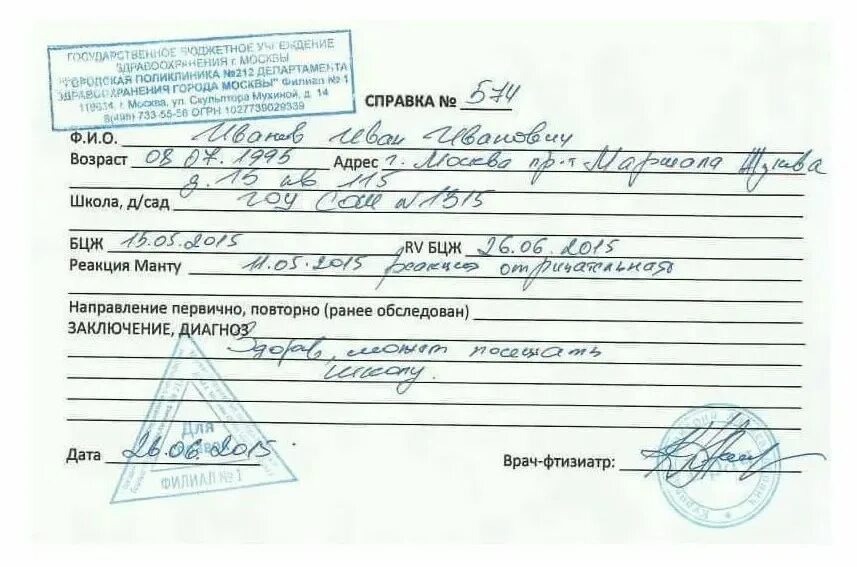 ГОСУДАРСТВЕННОЕ БЮДЖЕТНОЕ УЧРЕЖДЕНИЕ
ЗДРАВООХРАНЕНИЯ г. МОСКВЫ
"ГОРОДСКАЯ ПОЛИКЛИНИКА №212 ДЕПАРТАМЕНТА
ЗДРАВООХРАНЕНИЯ ГОРОДА МОСКВЫ" Филиал № 1
119634, г. Москва, ул. Скульптора Мухиной, д. 14
8(499) 733-55-56 ОГРН 1027739029339
СПРАВКА № 574
Ф.И.О. Иванов Иван Иванович
Возраст 08.07.1995 Адрес г. Москва пр-т Маршала Жукова
д. 15 кв 115
Школа, д/сад ГОУ СОШ №1315
БЦЖ 15.05.2015 RV БЦЖ 26.06.2015
Реакция Манту 11.05.2015 реакция отрицательная
Направление первично, повторно (ранее обследован)
ЗАКЛЮЧЕНИЕ, ДИАГНОЗ
Здоров, может посещать
школу.
Для
Дата 26.06.2015
ФИЛИАЛ № 1
Врач-фтизиатр: